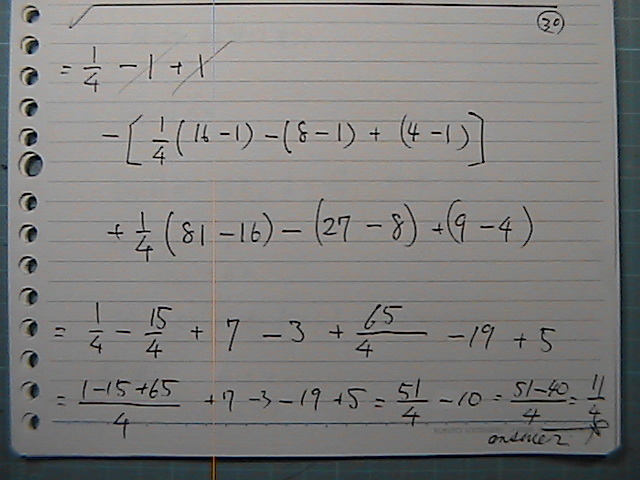 30
= 1/4 - 1 + 1
- [ 1/4 (16-1) - (8-1) + (4-1) ]
+ 1/4 (81-16) - (27-8) + (9-4)
= 1/4 - 15/4 + 7 - 3 + 65/4 - 19 + 5
= (1-15+65)/4 + 7 - 3 - 19 + 5 = 51/4 - 10 = (51-40)/4 = 11/4
answer